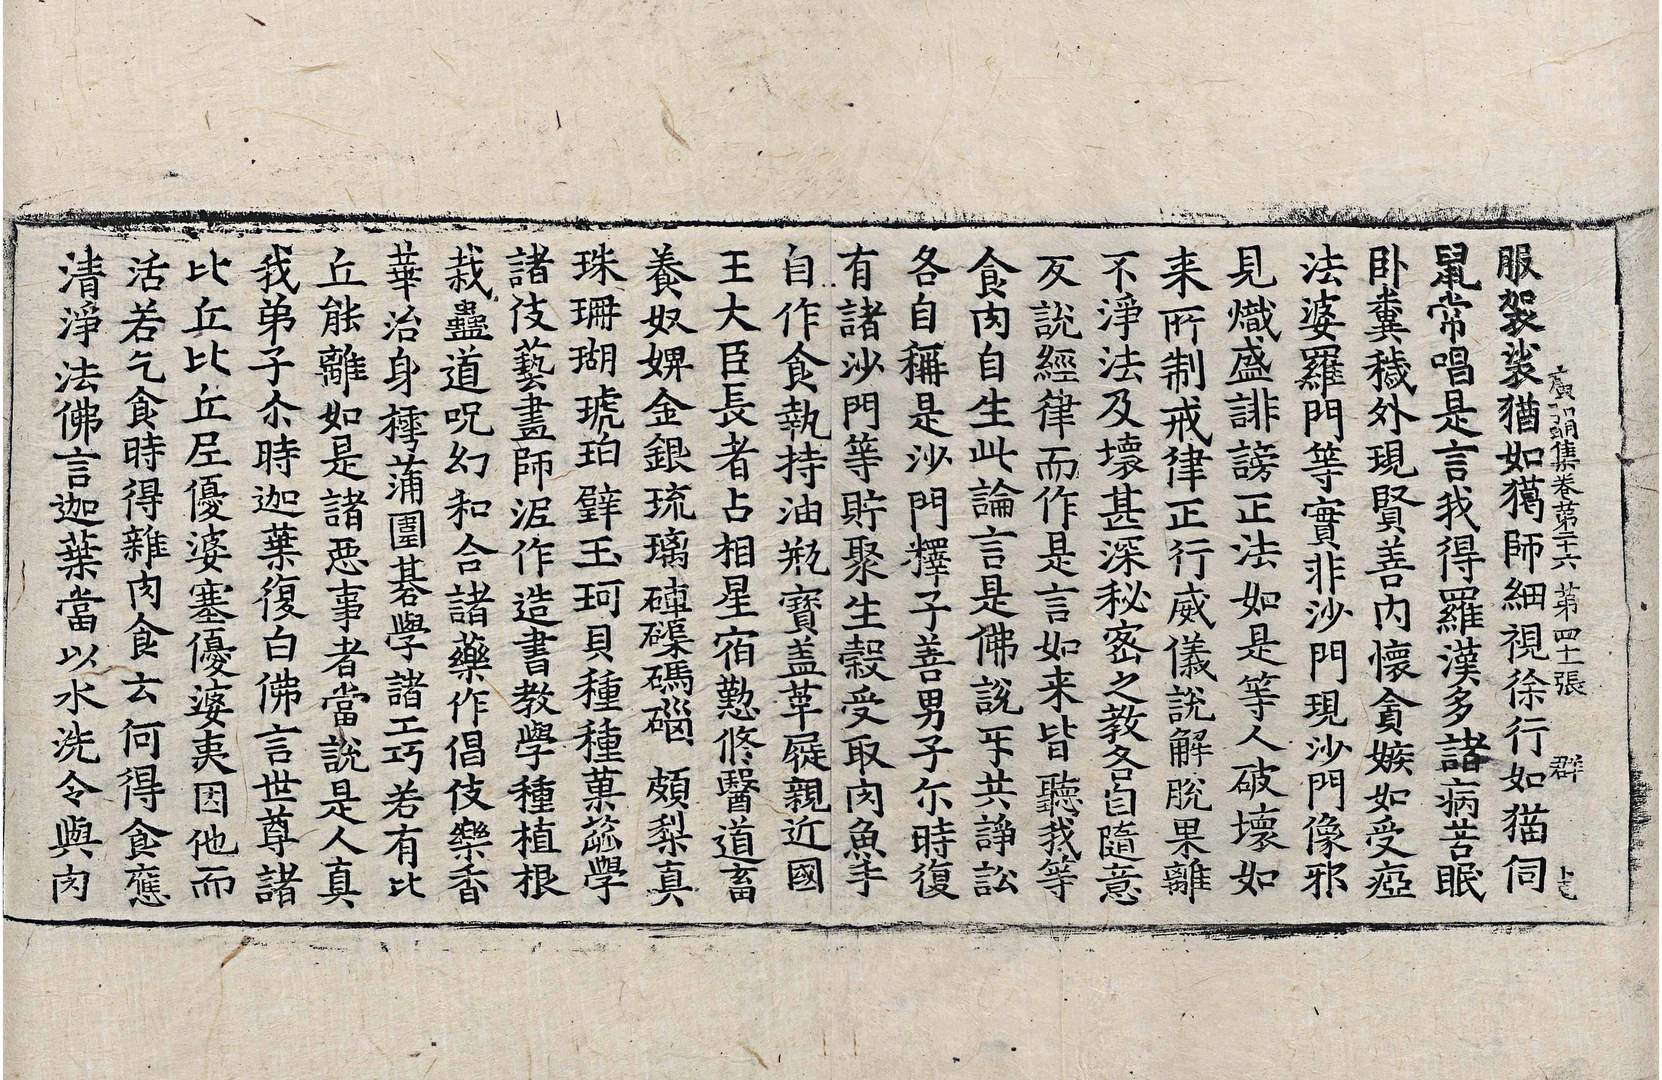 服袈裟猶如獦師細視徐行如猫伺
廣弘明集卷第二十六 第四十一張 群
鼠常唱是言我得羅漢多諸病苦眠
卧糞穢外現賢善内懷貪嫉如受瘂
法婆羅門等實非沙門現沙門像邪
見熾盛誹謗正法如是等人破壞如
来所制戒律正行威儀說解脫果離
不淨法及壞甚深秘密之教各自隨意
反說經律而作是言如来皆聽我等
食肉自生此論言是佛說平共諍訟
各自稱是沙門釋子善男子尒時復
有諸沙門等貯聚生穀受取肉魚手
自作食執持油瓶寶盖革屣親近國
王大臣長者占相星宿懃脩醫道畜
養奴婢金銀琉璃硨磲碼碯頗梨真
珠珊瑚琥珀璧玉珂貝種種菓蓏學
諸伎藝畫師泥作造書教學種植根
栽蠱道呪幻和合諸藥作倡伎樂香
華治身摴蒲圍碁學諸工巧若有比
丘能離如是諸惡事者當說是人真
我弟子尒時迦葉復白佛言世尊諸
比丘比丘尼優婆塞優婆夷因他而
活若乞食時得雜肉食云何得食應
清淨法佛言迦葉當以水洗令與肉